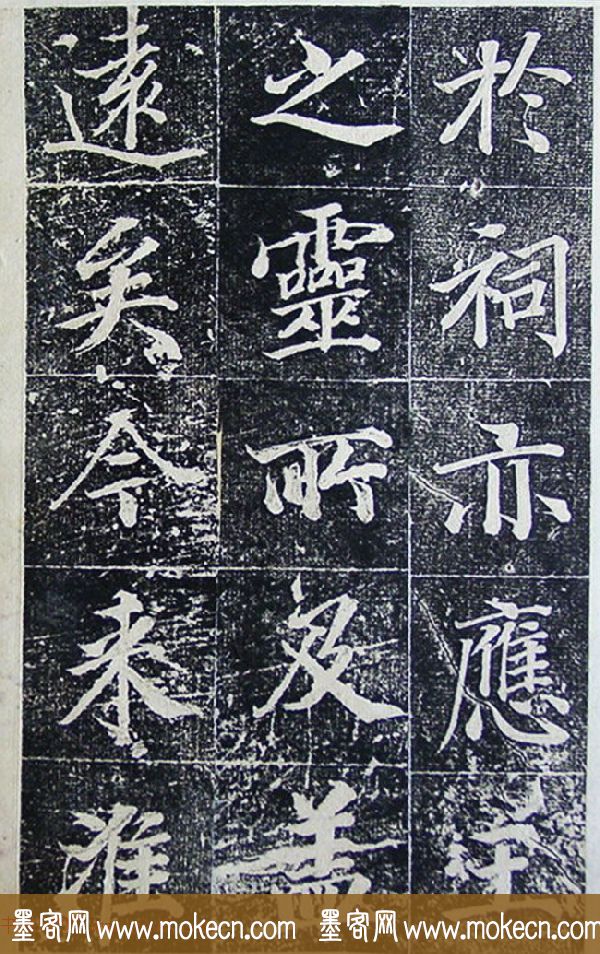 於祠亦應王
之靈所及
遠矣今来淮
墨客网 www.mokecn.com 墨客网 www.mokecn.com